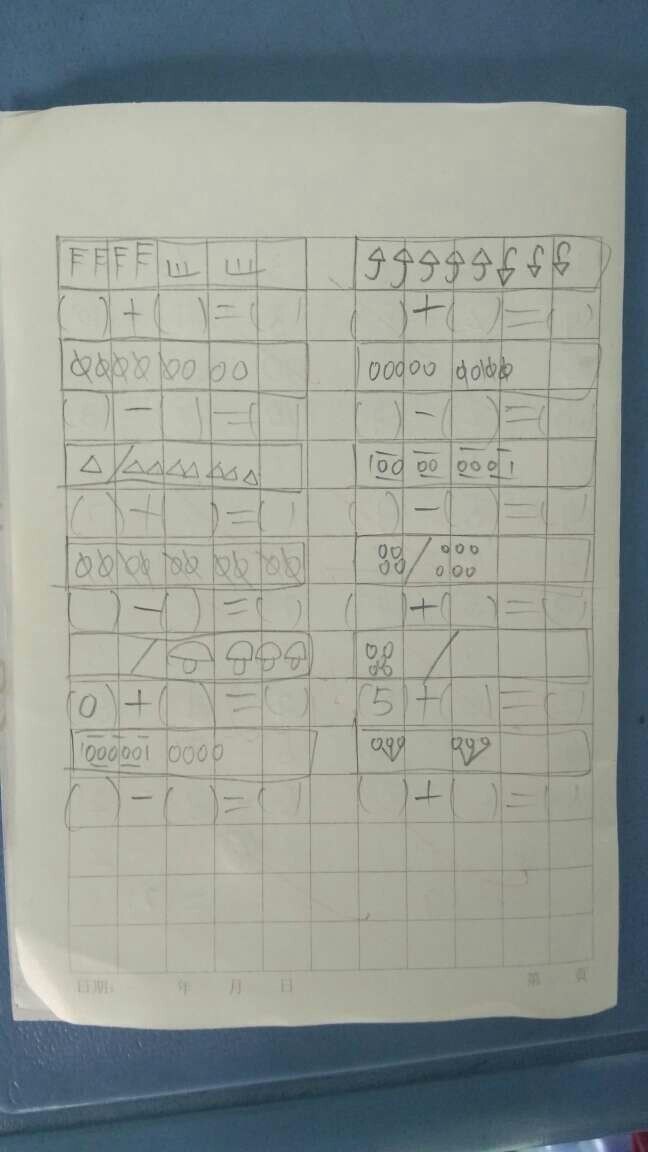 ( ) + ( ) = ( )   ( ) + ( ) = ( )
( ) - ( ) = ( )   ( ) - ( ) = ( )
( ) + ( ) = ( )   ( ) - ( ) = ( )
( ) - ( ) = ( )   ( ) + ( ) = ( )
(0) + ( ) = ( )   (5) + ( ) = ( )
( ) - ( ) = ( )   ( ) + ( ) = ( )
日期: 年 月 日 第 页